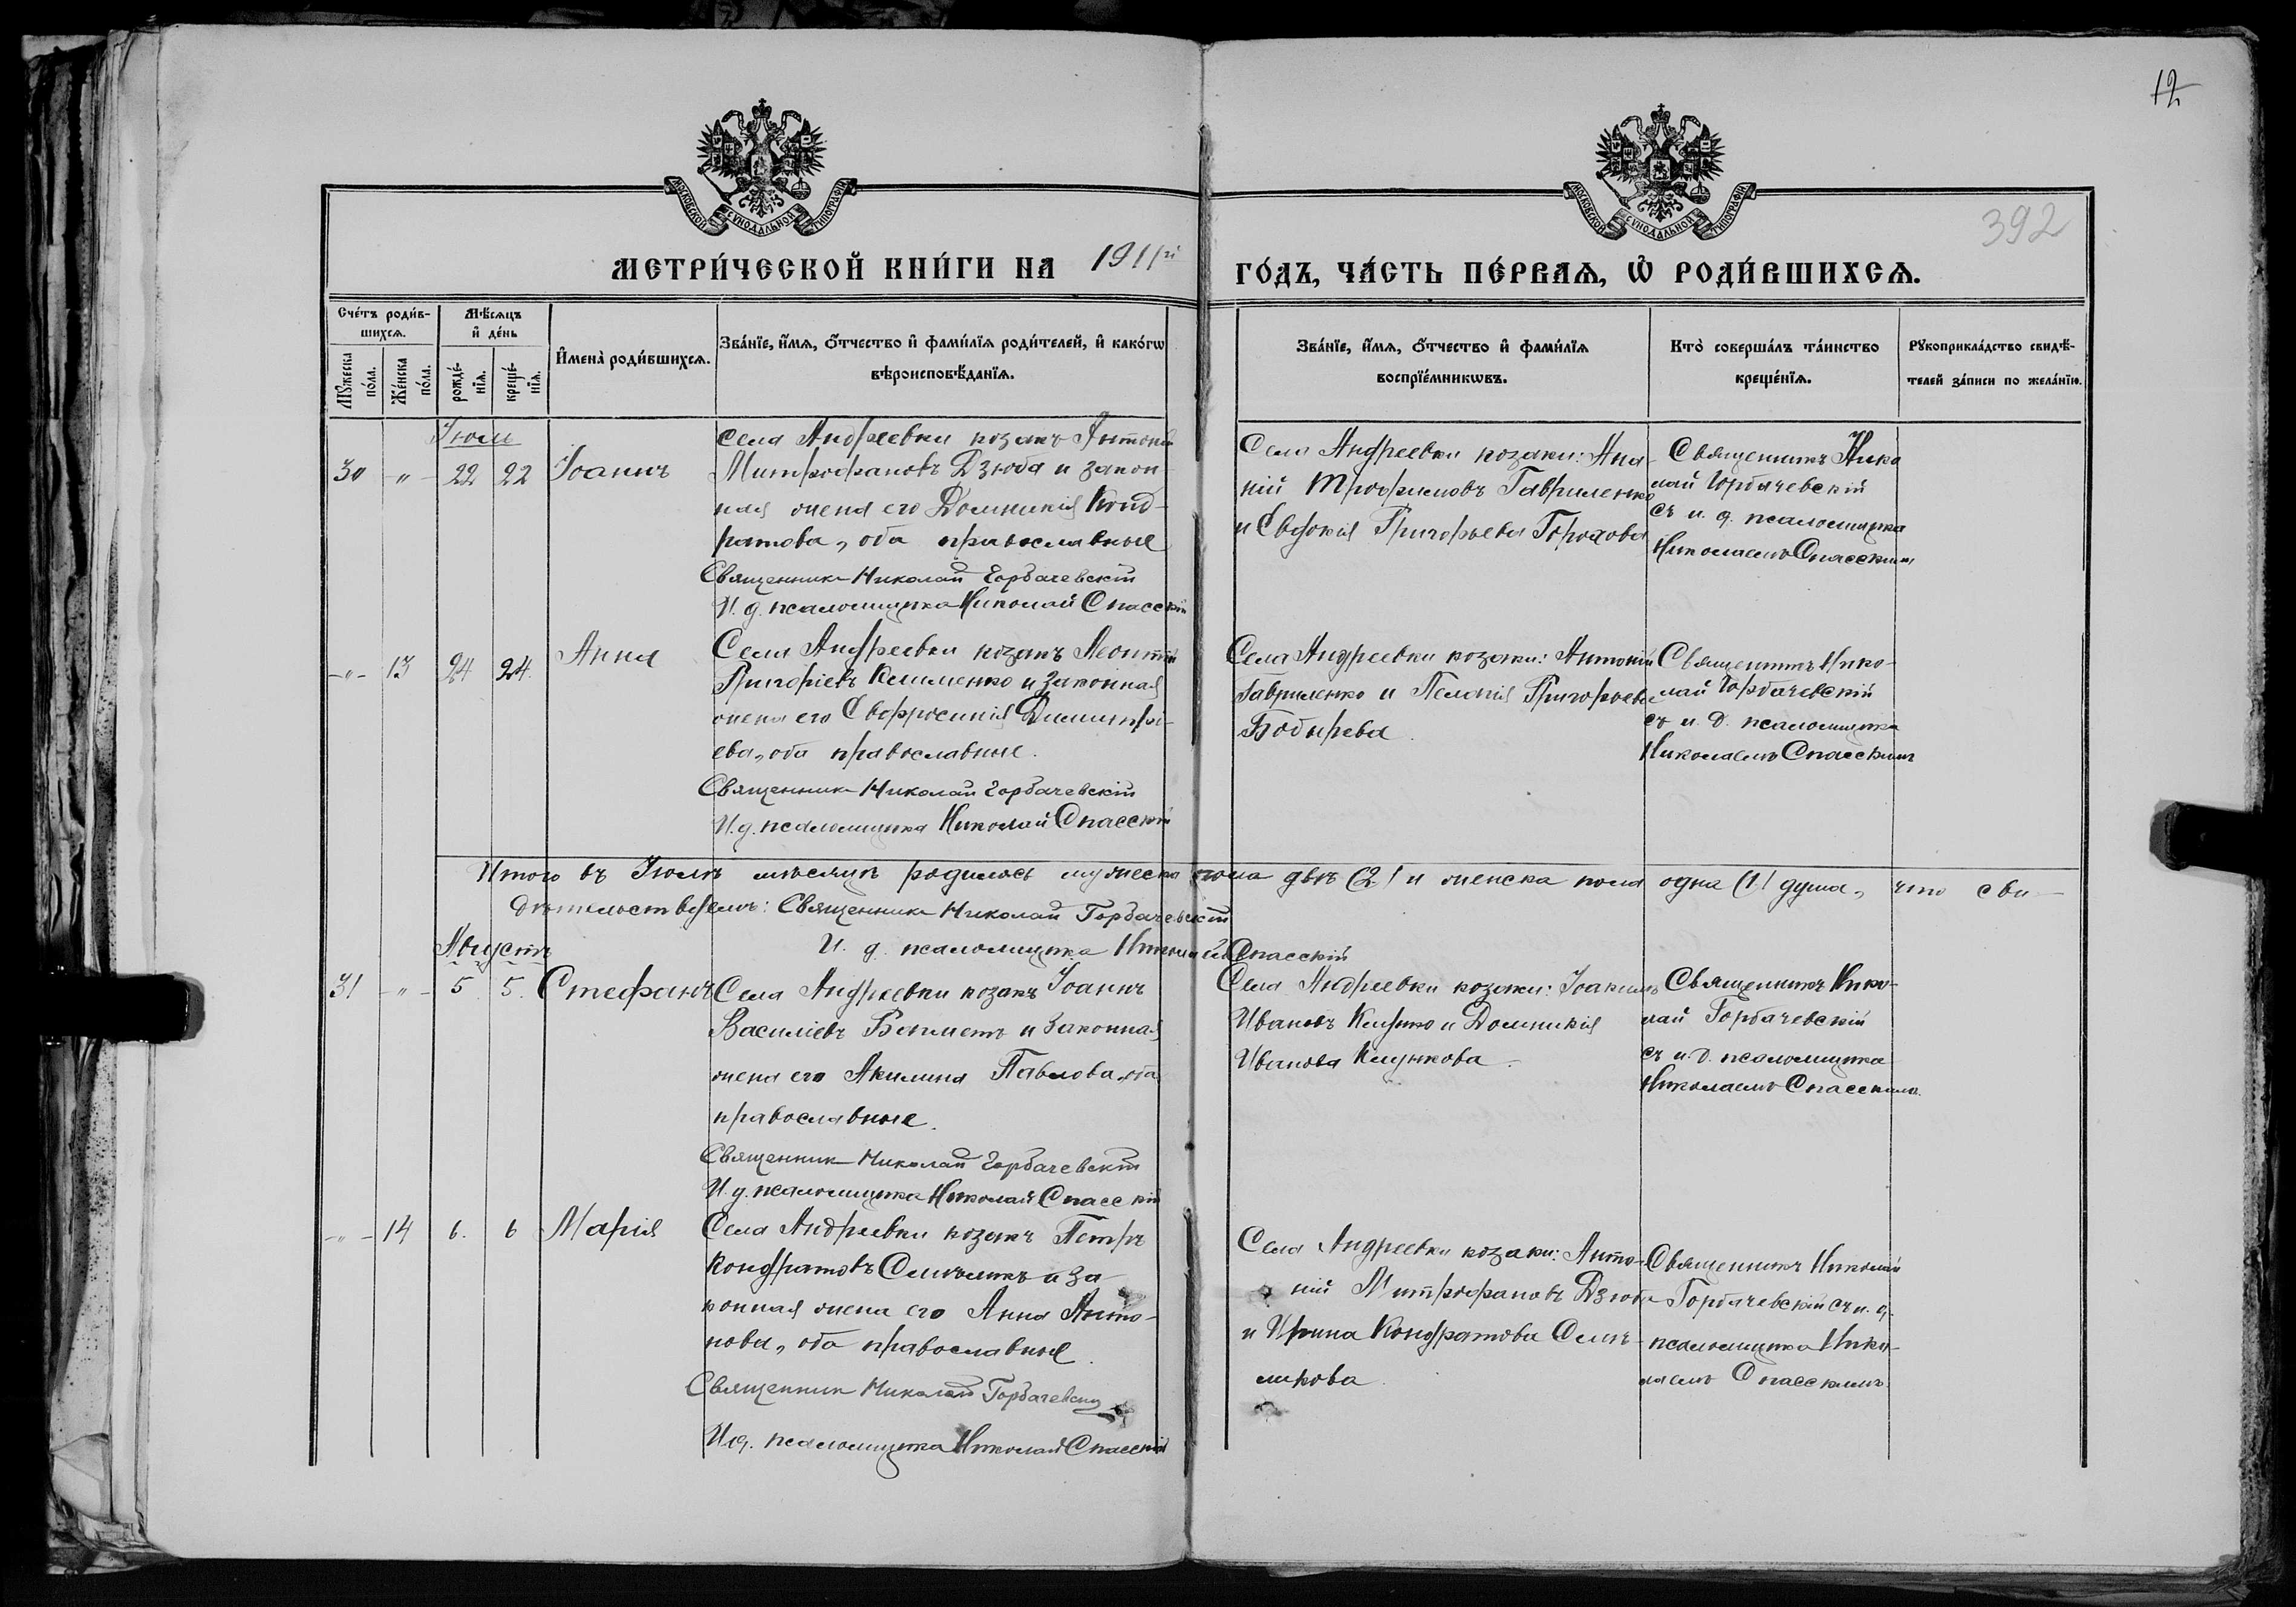 12
392
МОСКОВСКОЙ СѴНОДАЛЬНОЙ ТИПОГРАФІИ
МОСКОВСКОЙ СѴНОДАЛЬНОЙ ТИПОГРАФІИ
МЕТРИ́ЧЕСКОЙ КНИ́ГИ НА 1911й ГО́ДЪ, ЧА́СТЬ ПЕ́РВАѦ, Ѡ҆ РОДИ́ВШИХСѦ.
Сче́тъ роди́в-
шихсѧ.
Мꙋ́жеска
по́ла.
Же́нска
по́ла.
Мѣ́сѧцъ
и҆ де́нь
рожде́-
нїѧ.
креще́-
нїѧ.
И҆мена̀ роди́вшихсѧ.
Зва́нїе, и҆́мѧ, ѻ҆́тчество и҆ фами́лїѧ роди́телей, и҆ како́гѡ
вѣроисповѣ́данїѧ.
Зва́нїе, и҆́мѧ, ѻ҆́тчество и҆ фами́лїѧ
воспрїе́мникѡвъ.
Кто̀ соверша́лъ та́инство
креще́нїѧ.
Рꙋкоприкла́дство свидѣ́-
телей за́писи по жела́нїю.
Іюль
30 -"- 22 22 Іоаннъ
Села Андреевки козакъ Антоній
Митрофановъ Дзюба и закон-
ная жена его Домникія Конд-
ратова, оба православные
Священникъ Николай Горбачевскій
И. д. псаломщика Николай Спасскій
Села Андреевки козаки: Ана-
ній Трофимовъ Гавриленко
и Евдокія Григорьева Горохова
Священникъ Нико
лай Горбачевскій
съ и. д. псаломщика
Николаемъ Спасскимъ
-"- 13 24 24. Анна
Села Андреевки козакъ Леонтій
Григоріевъ Клименко и законная
жена его Евфросинія Димитрі-
ева, оба православные.
Священникъ Николай Горбачевскій
И. д. псаломщика Николай Спасскій
Села Андреевки козаки: Антоній
Гавриленко и Пелагія Григорьева
Бобырева.
Священникъ Нико-
лай Горбачевскій
съ и. д. псаломщика
Николаемъ Спасскимъ
Итого въ Іюлѣ мѣсяцѣ родилось мужеска пола двѣ (2) и женска пола одна (1) душа, что сви-
дѣтельствуемъ: Священникъ Николай Горбачевскій
И. д. псаломщика Николай Спасскій
Августъ
31 -"- 5. 5. Стефанъ
Села Андреевки козакъ Іоаннъ
Василіевъ и законная
жена его Акилина Павлова, оба
православные.
Священникъ Николай Горбачевскій
И. д. псаломщика Николай Спасскій
Села Андреевки козаки: Іоакимъ
Ивановъ и Домникія
Иванова
Священникъ Нико-
лай Горбачевскій
съ и. д. псаломщика
Николаемъ Спасскимъ.
-"- 14 6. 6 Марія
Села Андреевки козакъ Петръ
Кондратовъ и за
конная жена его Анна Анто-
нова, оба православные.
Священникъ Николай Горбачевскій
И. д. псаломщика Николай Спасскій
Села Андреевки козаки: Анто-
ній Митрофановъ Дзюба
и Ирина Кондратова
Священникъ Николай
Горбачевскій съ и. д.
псаломщика Нико-
лаемъ Спасскимъ.